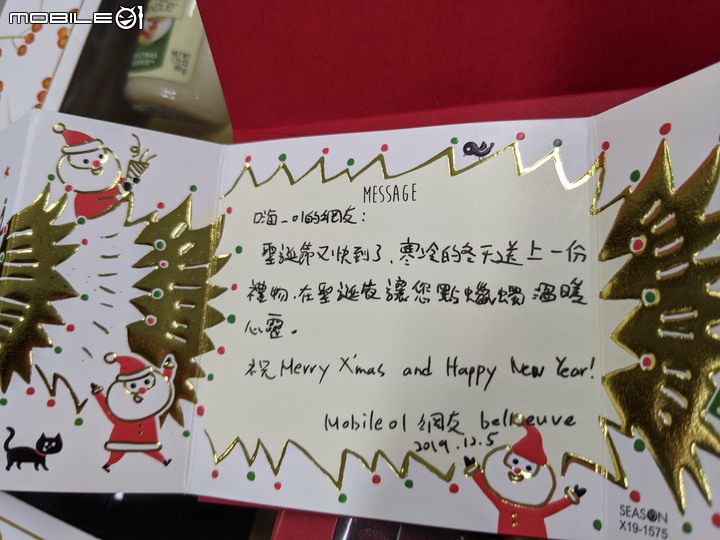 MOBILE01
MESSAGE
嗨_01的網友：
聖誕節又快到了，寒冷的冬天送上一份
禮物，在聖誕夜讓您點蠟燭溫暖
心靈。
祝 Merry X'mas and Happy New Year!
Mobile01 網友 bellreuve
2019.12.5
SEASON
X19-1575